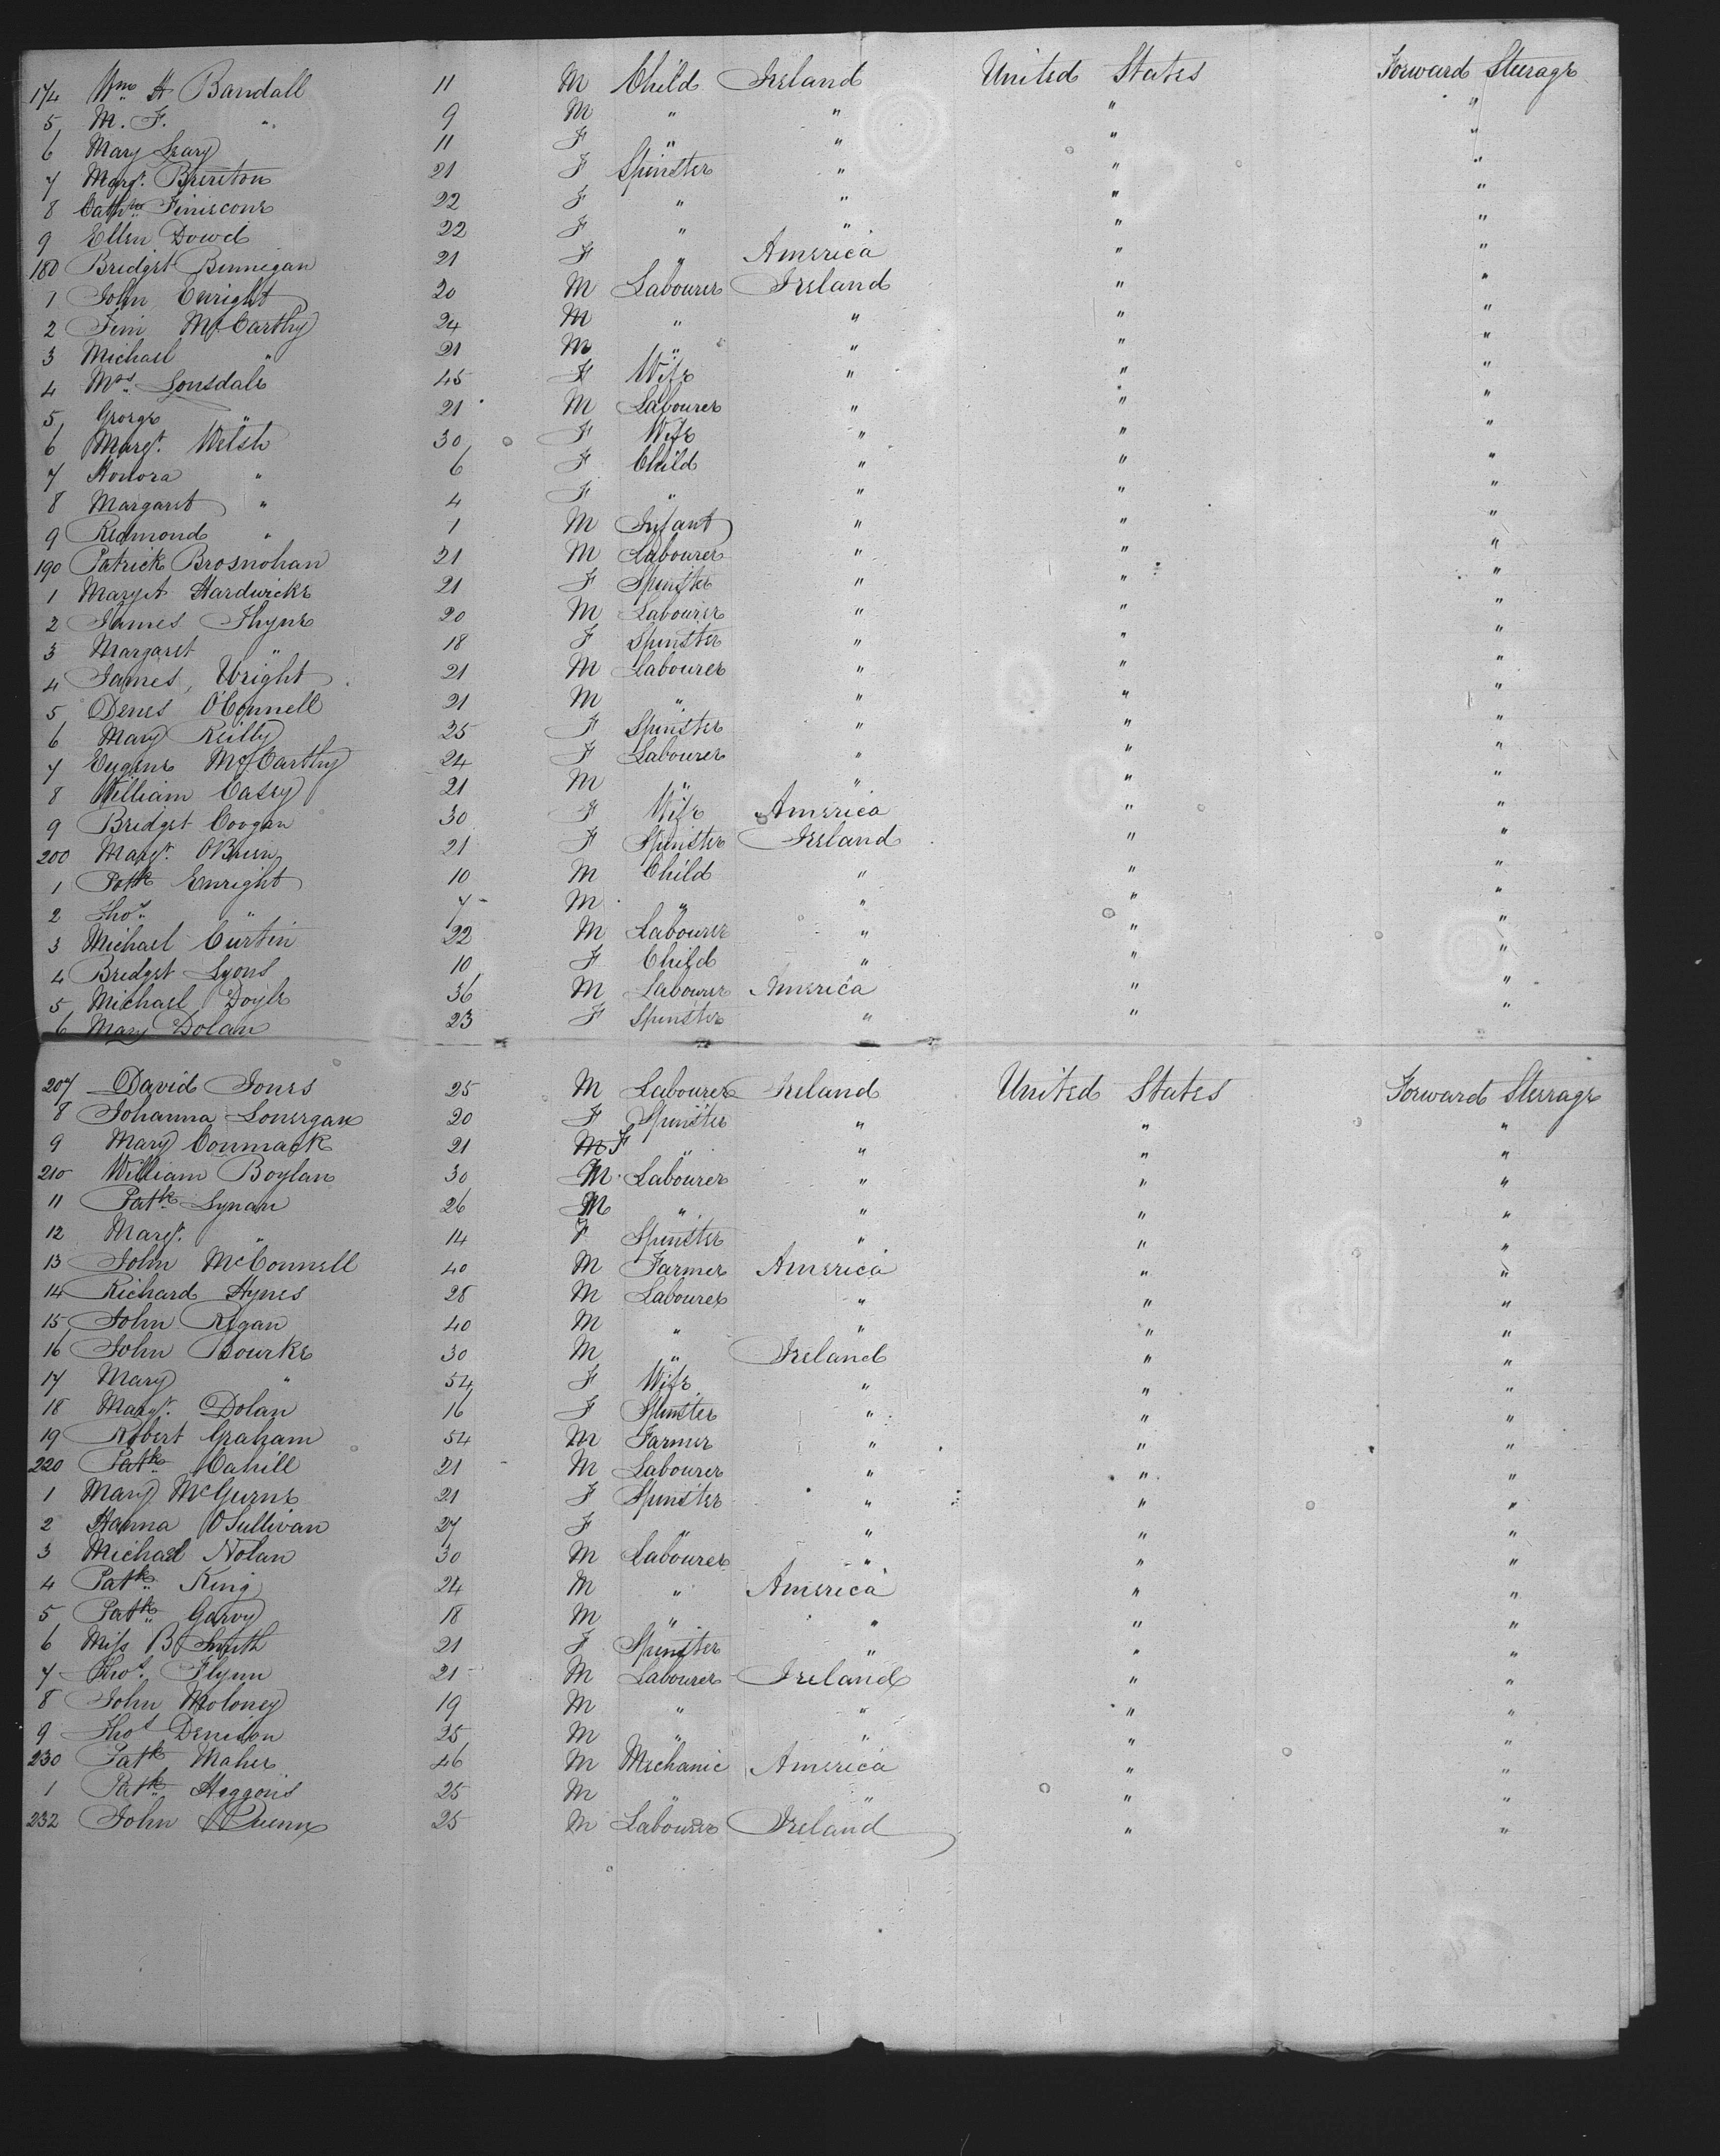 174 Wm H Bandall 11 M Child Ireland United States Forward Steerage
5 M. F. " 9 M " " " "
6 Mary Leary 11 F " " " "
7 Margt. Brereton 21 F Spinster " " "
8 Cathne Finiscone 22 F " " " "
9 Ellen Dowd 22 F " " " "
180 Bridget Binnegan 21 F " America " "
1 John Enright 20 M Labourer Ireland " "
2 Tim McCarthy 24 M " " " "
3 Michael " 21 M " " " "
4 Mrs Lonsdale 45 F Wife " " "
5 George " 21 M Labourer " " "
6 Margt. Welsh 30 F Wife " " "
7 Honora " 6 F Child " " "
8 Margaret " 4 F " " " "
9 Redmond " 1 M Infant " " "
190 Patrick Brosnohan 21 M Labourer " " "
1 Mary A Hardwicke 21 F Spinster " " "
2 James Thyne 20 M Labourer " " "
3 Margaret " 18 F Spinster " " "
4 James Wright 21 M Labourer " " "
5 Denis O'Connell 21 M " " " "
6 Mary Reilly 25 F Spinster " " "
7 Eugene McCarthy 24 F Labourer " " "
8 William Casey 21 M " " " "
9 Bridget Coogan 30 F Wife America " "
200 Margt. O'Brien 21 F Spinster Ireland " "
1 Patk Enright 10 M Child " " "
2 Thos. " 7 M " " " "
3 Michael Curtin 22 M Labourer " " "
4 Bridget Lyons 10 F Child " " "
5 Michael Doyle 36 M Labourer America " "
6 Mary Dolan 23 F Spinster " " "
207 David Jones 25 M Labourer Ireland United States Forward Steerage
8 Johanna Lonergan 20 F Spinster " " "
9 Mary Conmack 21 M F " " " "
210 William Boylan 30 M Labourer " " "
11 Patk Lynan 26 M " " " "
12 Margt. " 14 F Spinster " " "
13 John McConnell 40 M Farmer America " "
14 Richard Hynes 28 M Labourer " " "
15 John Regan 40 M " " " "
16 John Bourke 30 M " Ireland " "
17 Mary " 54 F Wife " " "
18 Margt. Dolan 16 F Spinster " " "
19 Robert Graham 54 M Farmer " " "
220 Patk Cahill 21 M Labourer " " "
1 Mary McGurne 21 F Spinster " " "
2 Hanna O'Sullivan 27 F " " " "
3 Michael Nolan 30 M Labourer " " "
4 Patk King 24 M " America " "
5 Patk Garvy 18 M " " " "
6 Miss B Smith 21 F Spinster " " "
7 Thos. Flynn 21 M Labourer Ireland " "
8 John Moloney 19 M " " " "
9 Thos Denison 25 M " " " "
230 Patk Maher 46 M Mechanic America " "
1 Patk Heggons 25 M " " " "
232 John Quenn 25 M Labourer Ireland " "